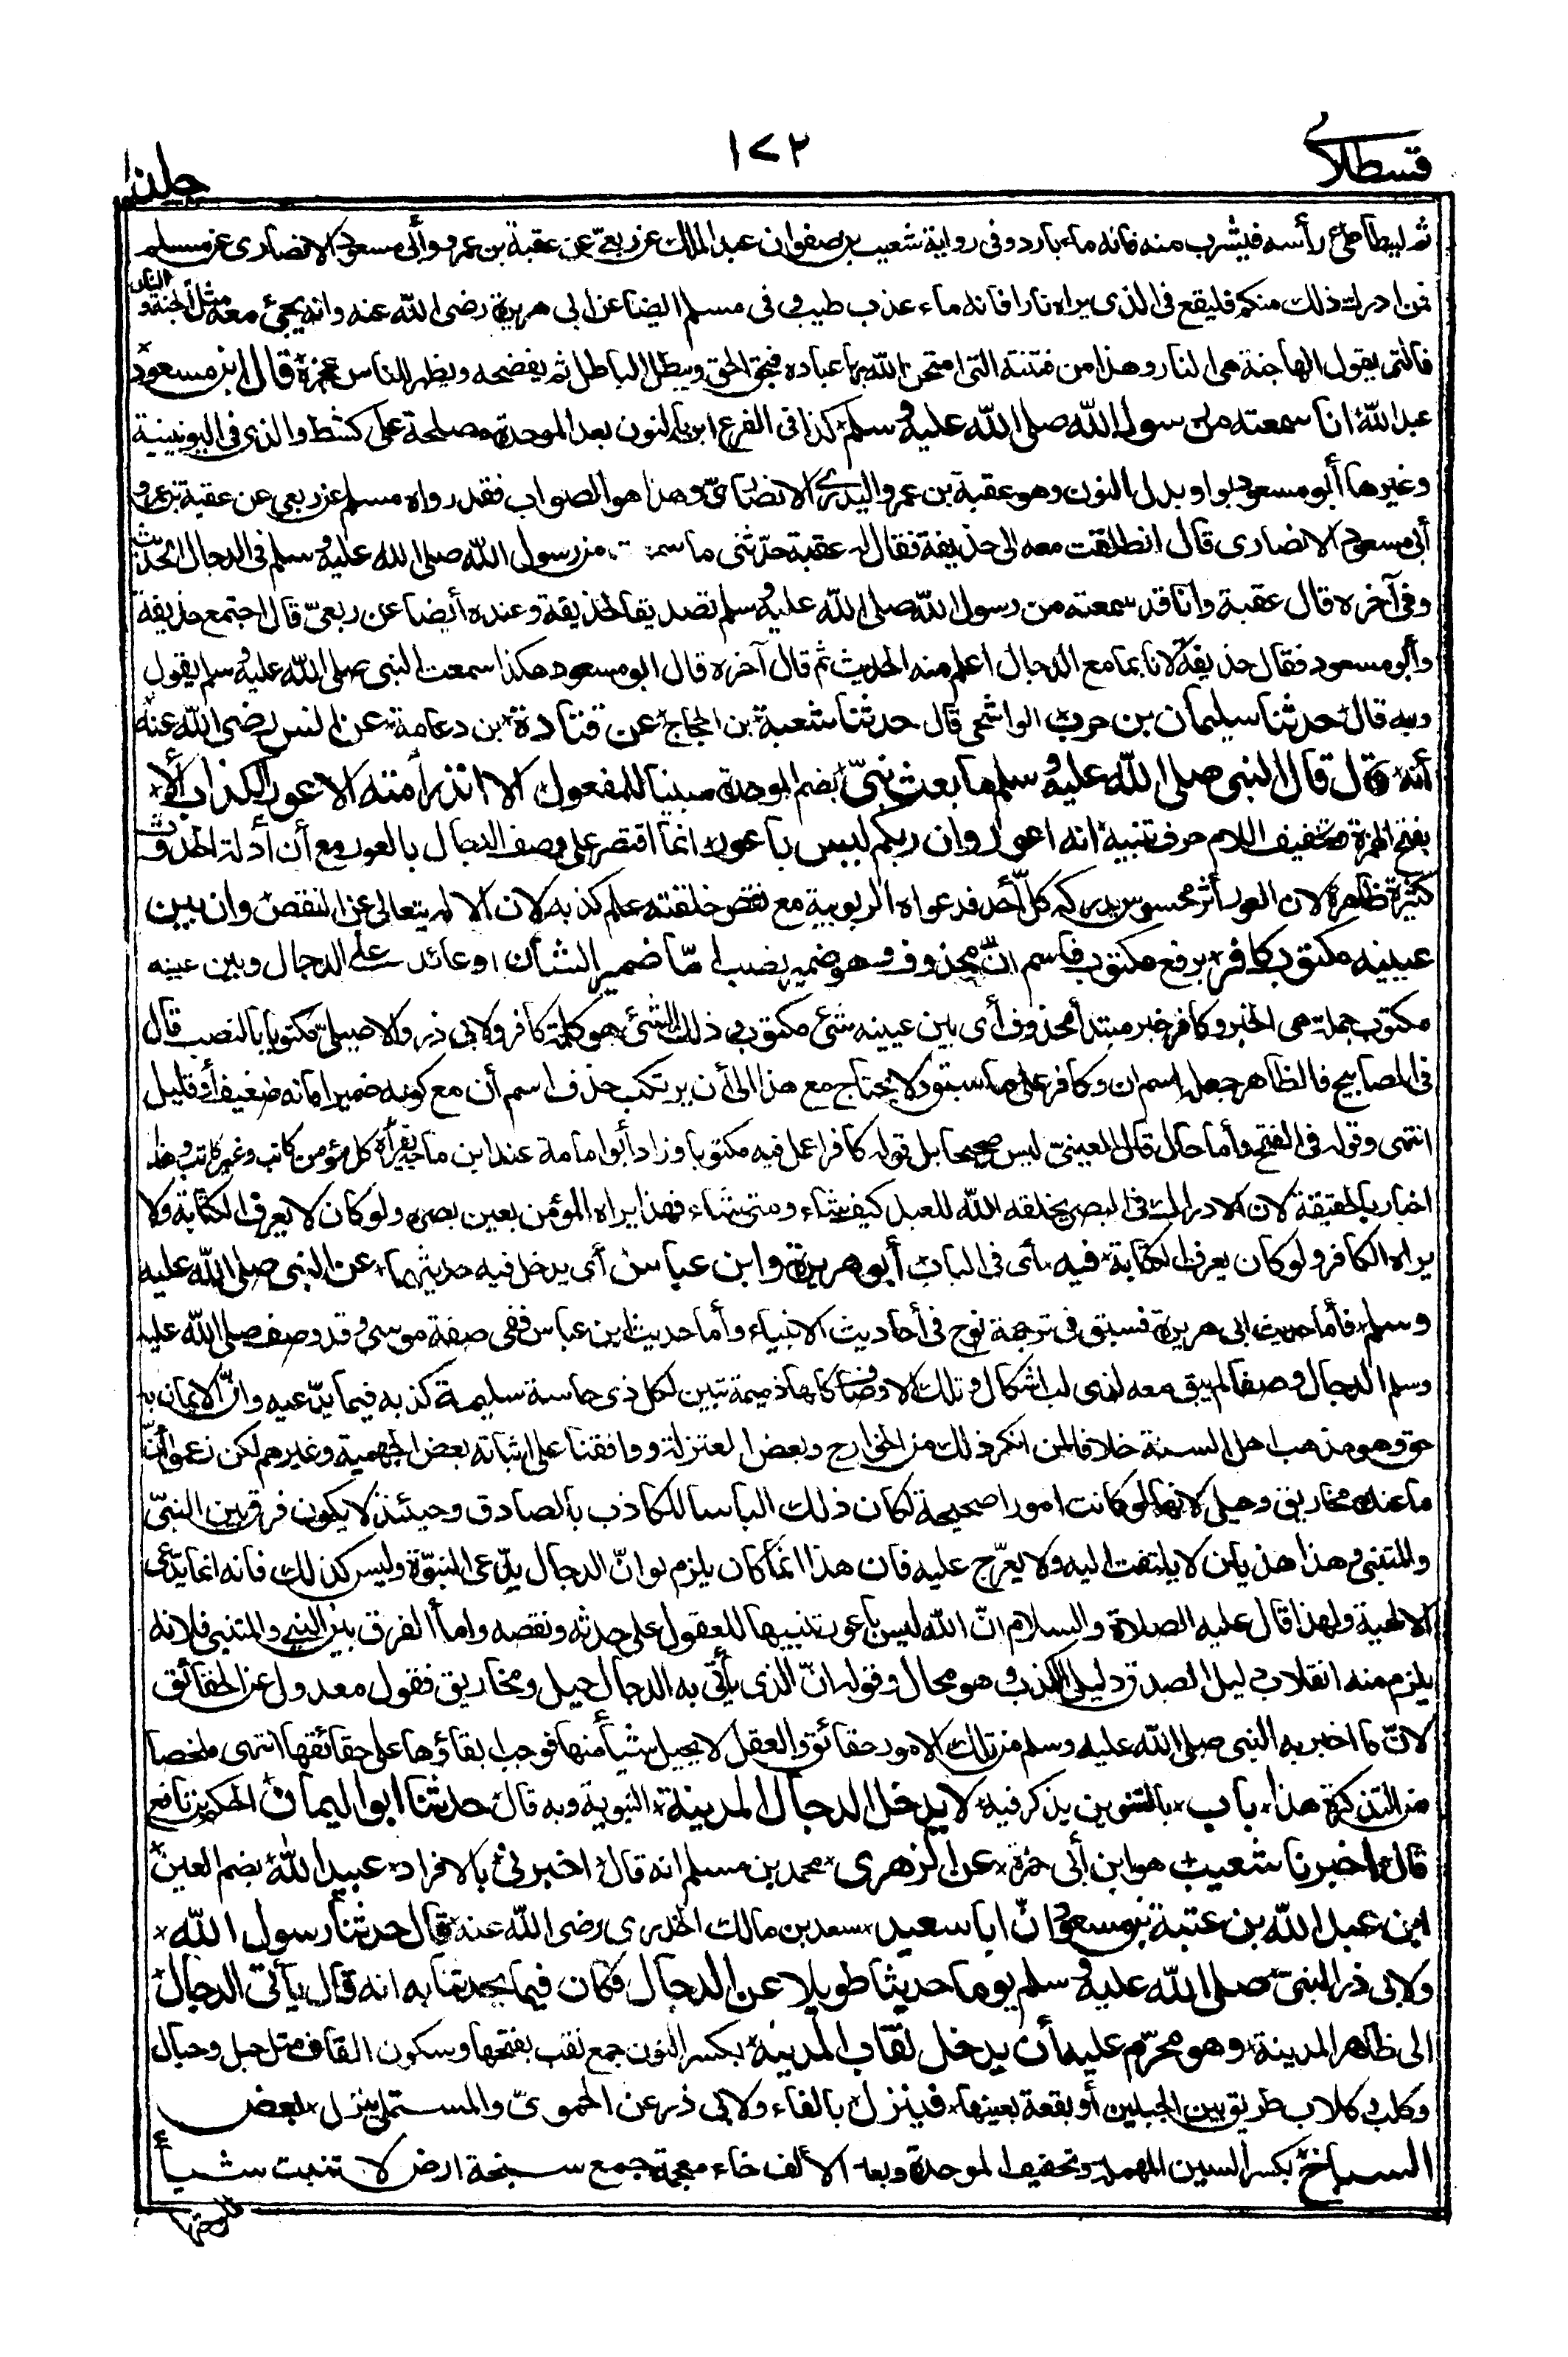 قسطلانى
١٧٢
جلد
ثم ليطأطئ رأسه فيشرب منه فانه ماء بارد وفى رواية شعيب بن صفوان عن عبد الملك عن ربعىّ عن عقبة بن عمرو وأبى مسعود الانصارى عن مسلم
فمن ادرك ذلك منكم فليقع فى الذى يراه نارا فانه ماء عذب طيب وفى مسلم ايضا عن ابى هريرة رضى الله عنه وانه يجىء معه مثل الجنة والنار
فالتى يقول انها جنة هى النار وهذا من فتنته التى امتحن الله بها عباده فيحق الحق ويبطل الباطل ثم يفضحه ويظهر للناس عجزه قال ابن مسعود
عبد الله انا سمعته من رسول الله صلى الله عليه وسلم كذا فى الفرع ابن بالنون بعد الموحدة مصلحة على كشط والذى فى اليونينية
وغيرها أبو مسعود بواو بدل النون وهو عقبة بن عمرو البدرى الانصارىّ وهذا هو الصواب فقد رواه مسلم عن ربعى عن عقبة بن عمرو
أبى مسعود الانصارى قال انطلقت معه الى حذيفة فقال له عقبة حدّثنى ما سمعت من رسول الله صلى الله عليه وسلم فى الدجال الحديث
وفى آخره قال عقبة وانا قد سمعته من رسول الله صلى الله عليه وسلم تصديقا لحذيفة وعنده أيضا عن ربعىّ قال اجتمع حذيفة
وأبو مسعود فقال حذيفة لانا بما مع الدجال اعلم منه الحديث ثم قال آخره قال ابو مسعود هكذا سمعت النبى صلى الله عليه وسلم يقول
وبه قال حدثنا سليمان بن حرب الواشحى قال حدثنا شعبة بن الحجاج عن قتادة بن دعامة عن انس رضى الله عنه
أنه قال قال النبى صلى الله عليه وسلم ما بعث نبىّ بضم الموحدة مبنيا للمفعول الا انذر أمته الاعور الكذاب ألا
بفتح الهمزة وتخفيف اللام حرف تنبيه انه اعور وان ربكم ليس باعور انما اقتصر على وصف الدجال بالعور مع أن أدلة الحدوث
كثيرة ظاهرة لان العور أثر محسوس يدركه كل أحد فدعواه الربوبية مع نقص خلقته علم كذبه لان الاله يتعالى عن النقص وان بين
عينيه مكتوب كافر برفع مكتوب فاسم انّ محذوف وهو ضمير نصب امّا ضمير الشأن او عائد على الدجال وبين عينيه
مكتوب جملة هى الخبر وكافر خبر مبتدأ محذوف أى بين عينيه شئ مكتوب وذلك الشئ هو كلمة كافر ولابى ذر والاصيلىّ مكتوبا بالنصب قال
فى المصابيح فالظاهر جعله اسم ان وكافر على ما سبق ولا يحتاج مع هذا الى أن يرتكب حذف اسم أن مع كونه ضميرا فانه ضعيف أو قليل
انتهى وقوله فى الفتح وأما حال قال العينىّ ليس صحيحا بل قوله كافر اعمل فيه مكتوبا وزاد أبو امامة عند ابن ماجه يقرأه كل مؤمن كاتب وغير كاتب وهذا
اخبار بالحقيقة لان الادراك فى البصر يخلقه الله للعبد كيف شاء ومتى شاء فهذا يراه المؤمن بعين بصره ولو كان لا يعرف الكتابة ولا
يراه الكافر ولو كان يعرف الكتابة فيه أى فى الباب أبو هريرة وابن عباس أى يدخل فيه حديثهما عن النبى صلى الله عليه
وسلم فأما حديث ابى هريرة فسبق فى ترجمة نوح فى أحاديث الانبياء وأما حديث ابن عباس ففى صفة موسى وقد وصف صلى الله عليه
وسلم الدجال وصفا لم يبق معه لذى لب اشكال وتلك الاوصاف كلها ذميمة تبين لكل ذى حاسة سليمة كذبه فيما يدّعيه وانّ الايمان به
حق وهو مذهب اهل السنة خلافا لمن انكر ذلك من الخوارج وبعض المعتزلة ووافقنا على اثباته بعض الجهمية وغيرهم لكن زعموا أنّ
ما عنده مخاريق وحيل لانها لو كانت امورا صحيحة لكان ذلك الباسا للكاذب بالصادق وحينئذ لا يكون فرق بين النبىّ
والمتنبى وهذا هذيان لا يلتفت اليه ولا يعرّج عليه فان هذا انما كان يلزم لو انّ الدجال يدّعى النبوّة وليس كذلك فانه انما يدّعى
الالهية ولهذا قال عليه الصلاة والسلام انّ الله ليس باعور تنبيها للعقول على حدثه ونقصه واما الفرق بين النبى والمتنبى فلانه
يلزم منه انقلاب دليل الصدق دليل الكذب وهو محال وقوله انّ الذى يأتى به الدجال حيل ومخاريق فقول معدول عن الحقائق
لانّ ما اخبر به النبى صلى الله عليه وسلم من تلك الامور حقائق والعقل لا يحيل شيأ منها فوجب ابقاؤها على حقائقها انتهى ملخصا
من التذكرة هذا باب بالتنوين يذكر فيه لا يدخل الدجال المدينة النبوية وبه قال حدثنا ابو اليمان الحكم بن نافع
قال اخبرنا شعيب هو ابن أبى حمزة عن الزهرى محمد بن مسلم انه قال اخبرنى بالافراد عبيد الله بضم العين
ابن عبد الله بن عتبة بن مسعود انّ ابا سعيد سعد بن مالك الخدرى رضى الله عنه قال حدثنا رسول الله
ولابى ذر النبىّ صلى الله عليه وسلم يوما حديثا طويلا عن الدجال فكان فيما يحدثنا به انه قال يأتى الدجال
الى ظاهر المدينة وهو محرّم عليه أن يدخل نقاب المدينة بكسر النون جمع نقب بفتحها وسكون القاف مثل حبل وحبال
وكلب وكلاب طريق بين الجبلين أو بقعة بعينها فينزل بالفاء ولابى ذر عن الحموىّ والمستملى ينزل بعض
السباخ بكسر السين المهملة وتخفيف الموحدة وبعد الألف خاء معجمة جمع سبخة ارض لا تنبت شيأ